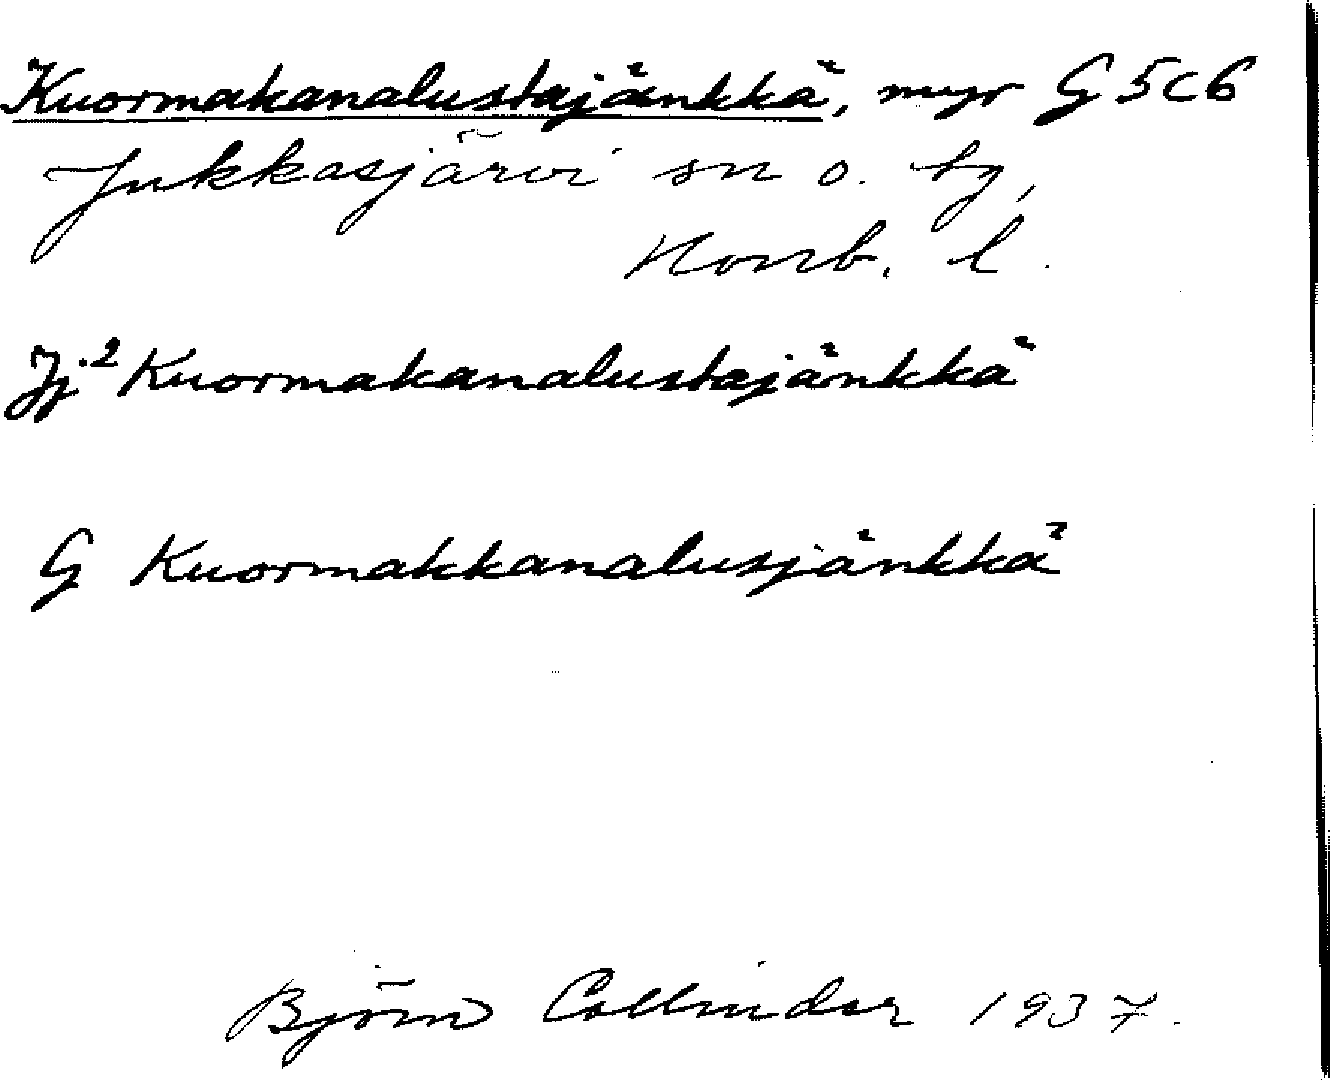 Kuormakanalustajänkkä, myr G5c6
Jukkasjärvi sn o. tg,
Norrb. l.
Jj.² Kuormakanalustajänkkä
G Kuormakkanalusjänkkä
Björn Collinder 1937.